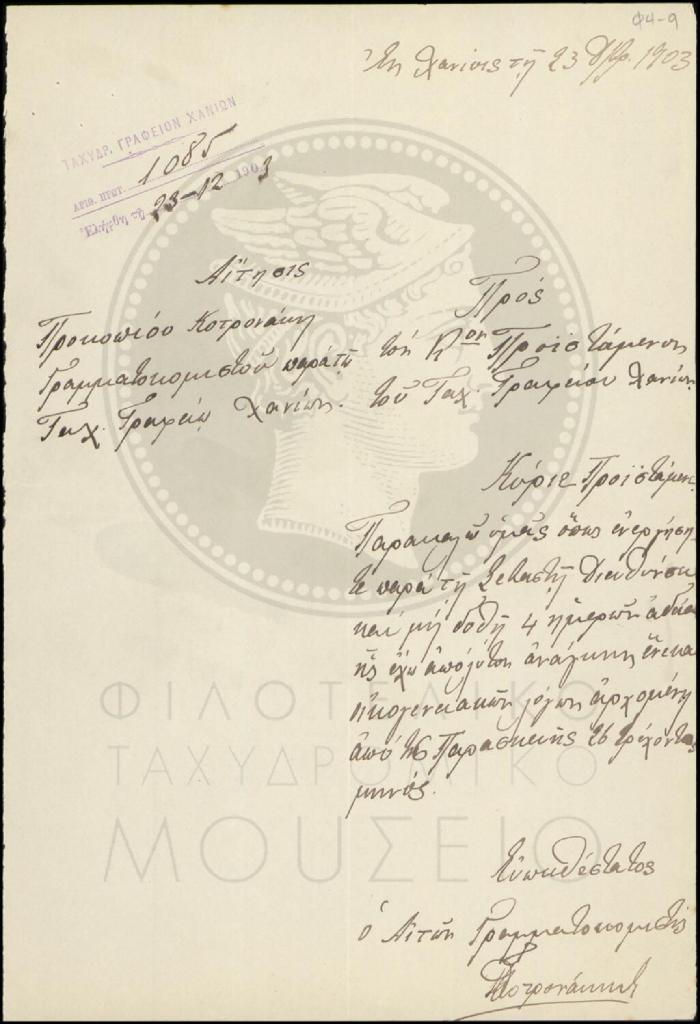 Φ4-9
Ἐν Χανίοις τῇ 23 Δ/βρ. 1903
ΤΑΧΥΔΡ. ΓΡΑΦΕΙΟΝ ΧΑΝΙΩΝ
ΑΡΙΘ. ΠΡΩΤ. 1085
Ἐλήφθη τῇ 23-12 1903
Αἴτησις
Προκοπίου Κοτρονάκη
Γραμματοκομιστοῦ παρὰ τῷ
Ταχ. Γραφείῳ Χανίων.
Πρός
τὸν Κον Προϊστάμενον
τοῦ Ταχ. Γραφείου Χανίων
Κύριε Προϊστάμενε
Παρακαλῶ ὑμᾶς ὅπως ἐνεργήση
τε παρὰ τῇ Σεβαστῇ Διευθύνσει
καὶ μοὶ δοθῇ 4 ἡμερῶν ἄδεια
ἧς ἔχω ἀπόλυτον ἀνάγκην ἕνεκα
οἰκογενειακῶν λόγων ἀρχομένη
ἀπὸ τῆς Παρασκευῆς 26 τρέχοντος
μηνός.
Εὐπειθέστατος
ὁ Αἰτῶν Γραμματοκομιστὴς
Κοτρονάκης
ΦΙΛΟΤΕΛΙΚΟ
ΤΑΧΥΔΡΟΜΙΚΟ
ΜΟΥΣΕΙΟ